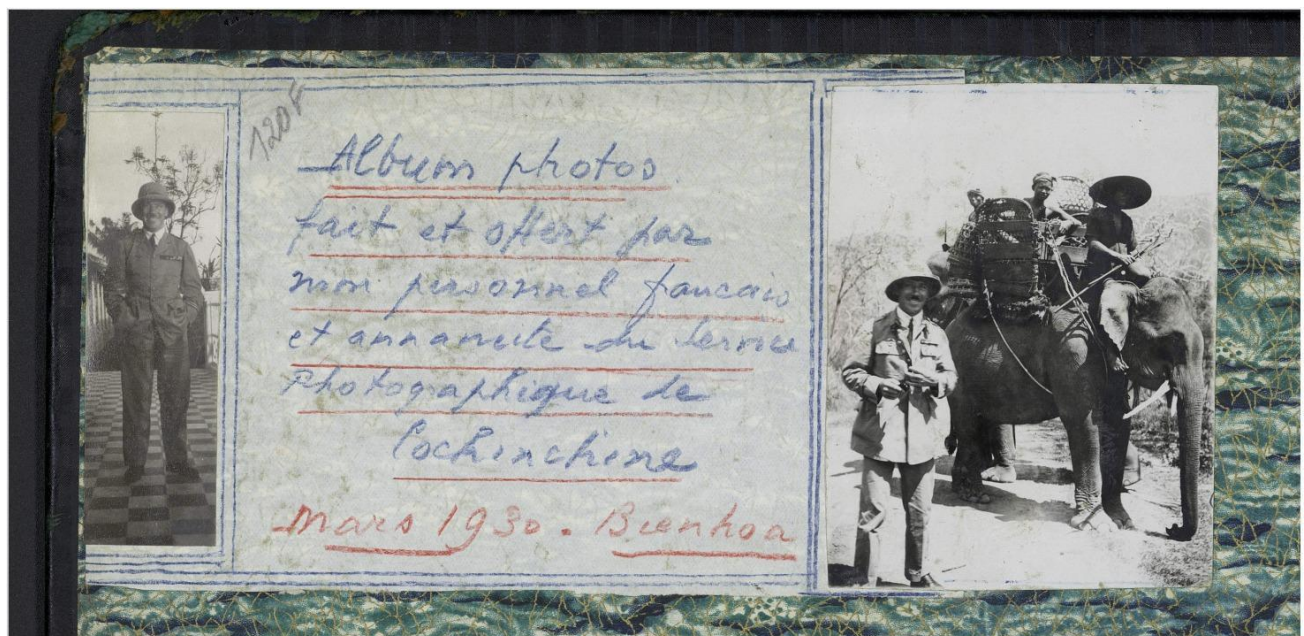 120F
Album photos
fait et offert par
mon personnel francais
et annamite du Service
Photographique de
Cochinchine
Mars 1930. Bienhoa